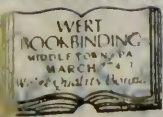 WERT
BOOKBINDING
MIDDLETOWN, PA
MARCH
We're Quality Bound